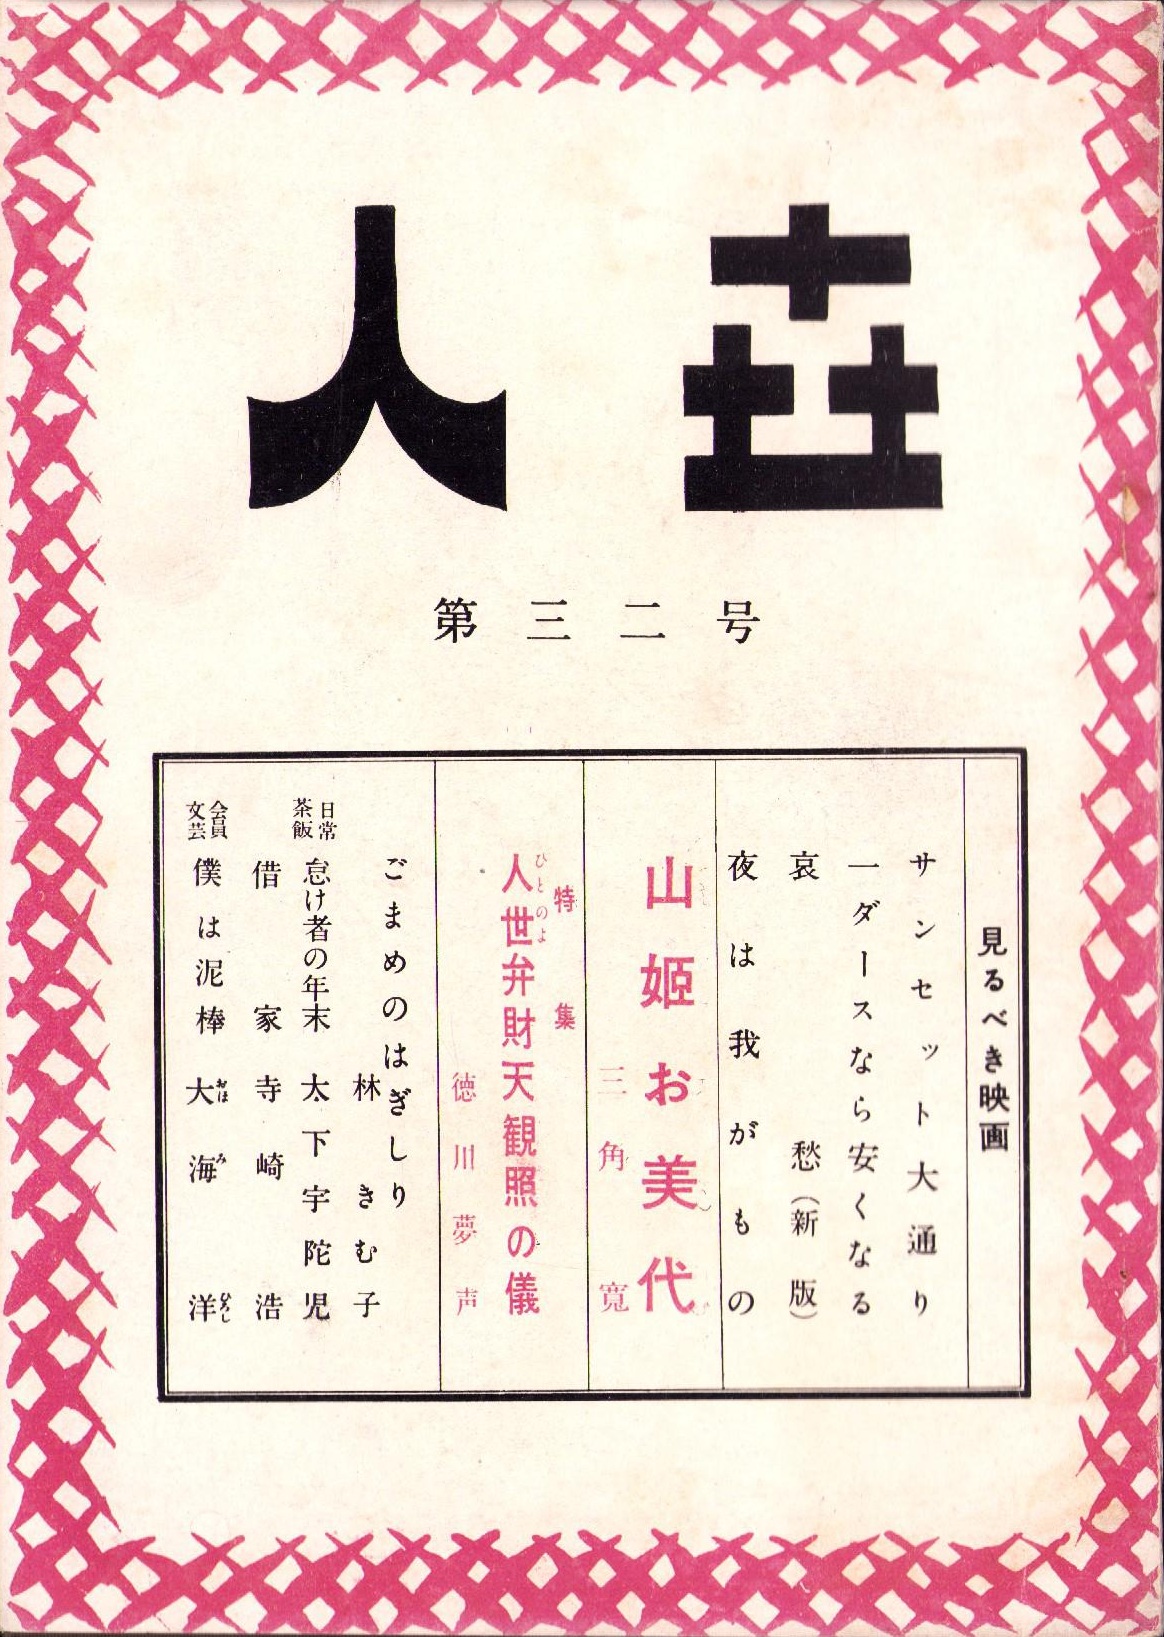 人世
第三二号
見るべき映画
サンセット大通り
一ダースなら安くなる
哀愁（新版）
夜は我がもの
山姫お美代
三角寛
特集
人世弁財天観照の儀
ひとのよ
徳川夢声
ごまめのはぎしり
林きむ子
日常茶飯
怠け者の年末 太下宇陀児
借家 寺崎浩
会員文芸
僕は泥棒 大海洋
おほみ